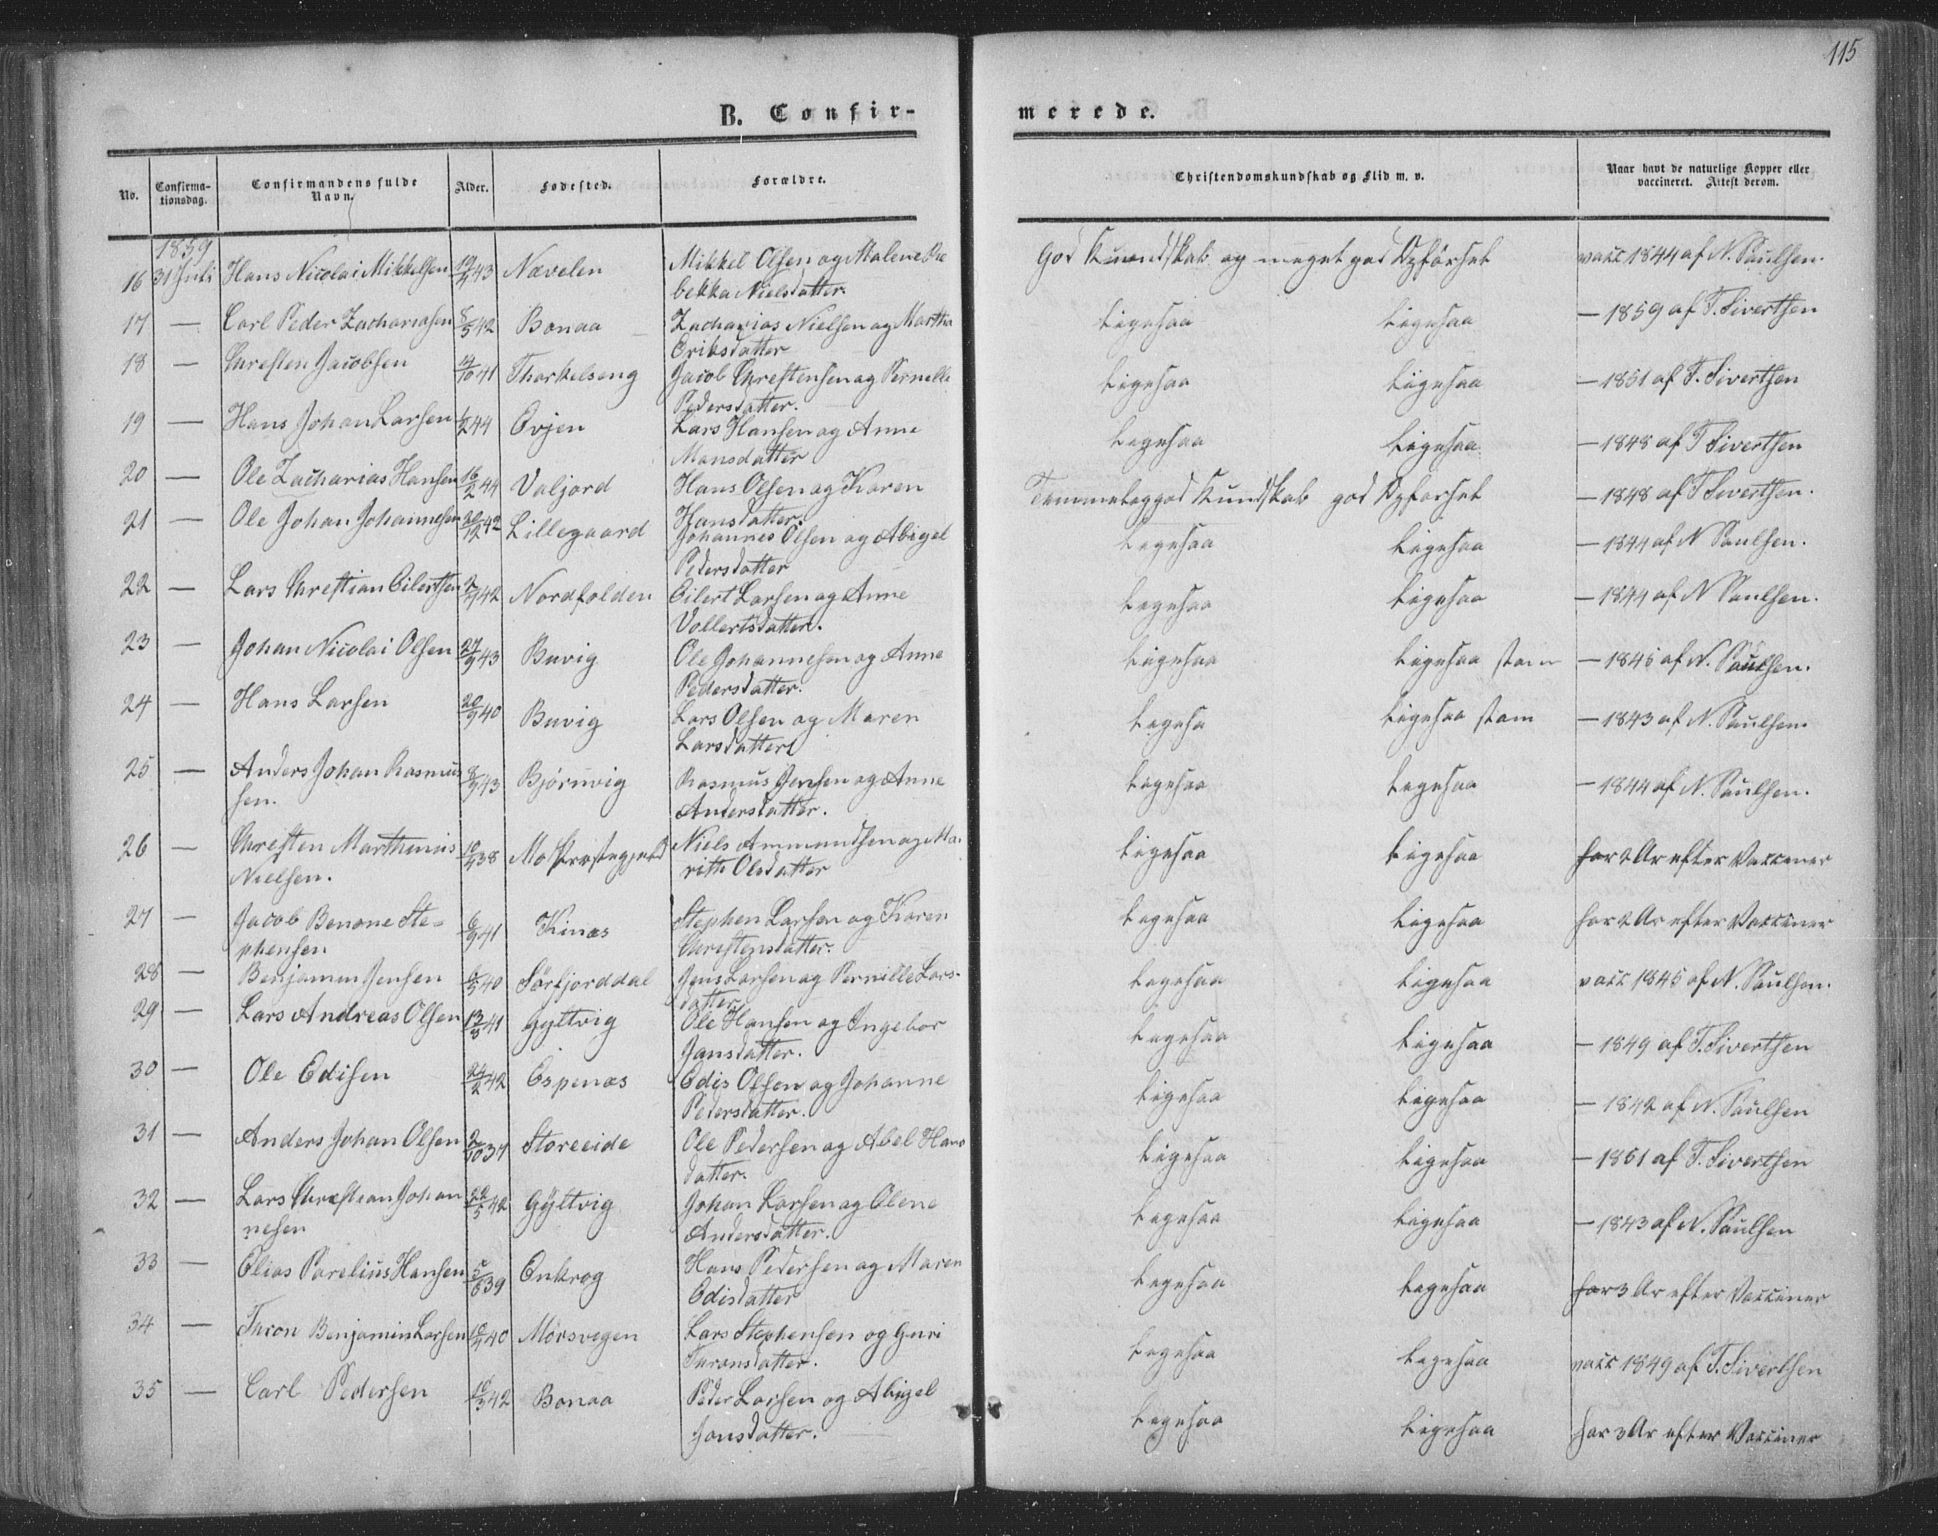 115
B. Confirmerede.
No. Confirmationsdag. Confirmandens fulde Navn. Alder. Fødested. Forældre. Christendomskundskab og Flid m. v. Naar havt de naturlige Kopper eller vaccineret. Attest derom.
1859
16 31 Juli Hans Nicolai Mikkelsen 43 Nævelen Mikkel Olsen og Malene Re god Kundskab og meget god Opførsel vacc 1844 af N. Saulsen.
bekka Nielsdatter.
17 — Carl Peder Zachariasen 8/5 42 Bonaa Zacharias Nielsen og Martha Ligesaa Ligesaa — 1859 af T. Sivertsen
Eriksdatter
18 — Chresten Jacobsen 41 Thorkelseng Jacob Chrestensen og Pernelle Ligesaa Ligesaa — 1851 af T. Sivertsen
Pedersdatter.
19 — Hans Johan Larsen 44 Evjen Lars Hansen og Anne Ligesaa Ligesaa — 1848 af T Sivertsen
Monsdatter
20 — Ole Zacharias Hansen 16/2 44 Valjord Hans Olsen og Karen Temmelig god Kundskab god Opførsel — 1848 af T Sivertsen.
Hansdatter.
21 — Ole Johan Johannesen 20/12 42 Lillegaard Johannes Olsen og Abigel Ligesaa Ligesaa — 1844 af N Saulsen.
Pedersdatter
22 — Lars Chrestian Eilertsen 42 Nordfolden Eilert Larsen og Anne Ligesaa Ligesaa — 1844 af N Saulsen.
Vollertsdatter.
23 — Johan Nicolai Olsen 27/9 43 Buvig Ole Johannesen og Anne Ligesaa Ligesaa stam — 1845 af N. Saulsen.
Pedersdatter.
24 — Hans Larsen 20/9 40 Buvig Lars Olsen og Maren Ligesa Ligesaa stam — 1843 af N. Saulsen.
Larsdatter
25 — Anders Johan Rasmus 8/9 43 Bjørnvig Rasmus Jensen og Anne Ligesaa Ligesaa — 1844 af N. Saulsen.
sen. Andersdatter.
26 — Chresten Marthinus 38 Mo Præstegjeld Niels Ammundsen og Ma Ligesaa Ligesaa har 2 Ar efter Vacciner
Nielsen. rith Olsdatter
27 — Jacob Benone Ste- 6/9 41 Kinæs Stephen Larsen og Karen Ligesaa Ligesaa har 2 Ar efter Vacciner
phensen Chrestensdatter.
28 — Benjamen Jensen 40 Sørfjorddal Jens Larsen og Pernille Lars- Ligesaa Ligesaa vacc 1845 af N. Saulsen.
datter
29 — Lars Andreas Olsen 13/8 41 Gyltvig Ole Hansen og Ingebor Ligesaa Ligesaa — 1849 af T. Sivertsen
Jansdatter.
30 — Ole Edisen 24/2 42 Espenæs Edis Olsen og Johanne Ligesaa Ligesaa — 1842 af N. Saulsen
Pedersdatter.
31 — Anders Johan Olsen 2/10 37 Storeeide Ole Pedersen og Abel Hans Ligesaa Ligesaa — 1851 af T. Sivertsen
datter.
32 — Lars Chrestian Johan 22/5 42 Gyltvig Johan Larsen og Olene Ligesaa Ligesaa — 1843 af N. Saulsen
nesen Andersdatter.
33 — Elias Parelius Hansen 5/6 39 Enkrog Hans Pedersen og Maren Ligesaa Ligesaa har 3 Ar efter Vacciner
Edisdatter
34 — Taron Benjamin Larsen 40 Mørsvegen Lars Stephensen og Guri Ligesaa Ligesaa vacc 1849 af T. Sivertsen
Taronsdatter.
35 — Carl Pedersen 42 Bonaa Peder Larsen og Abigel Ligesaa Ligesaa har 3 Ar efter Vacciner
Jonsdatter.